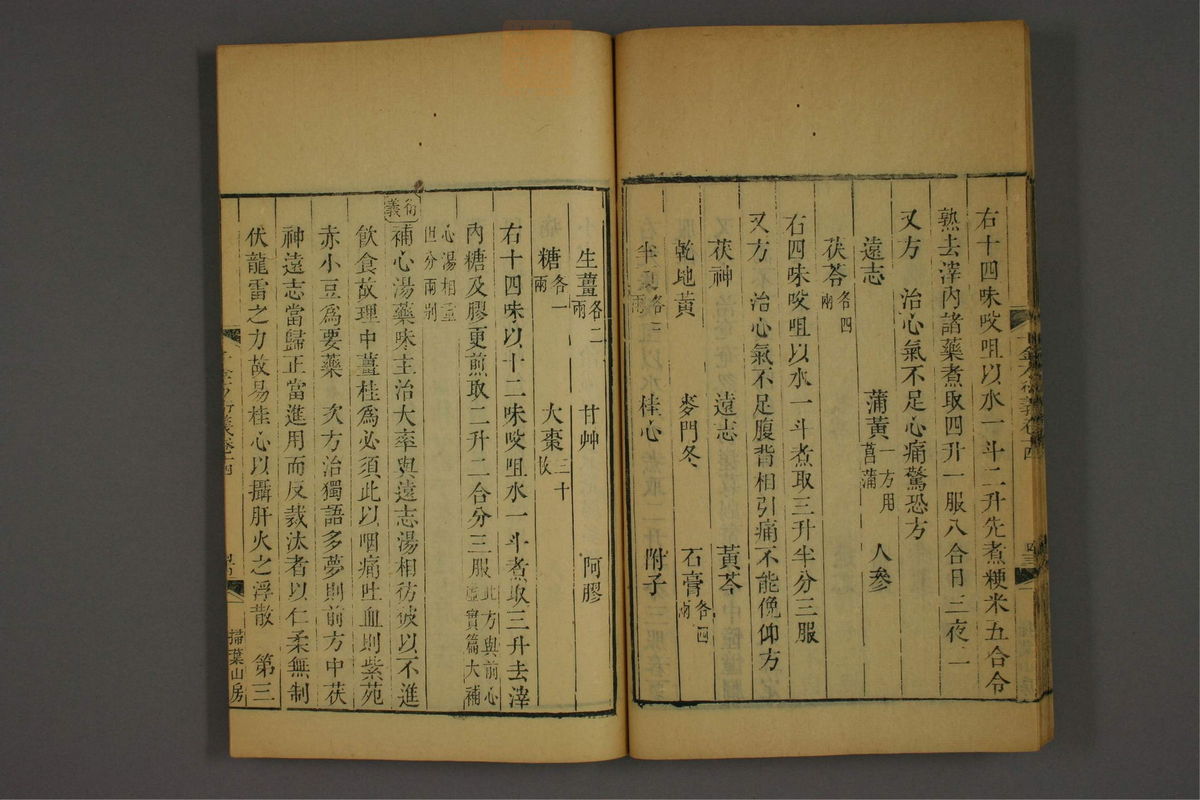 右十四味㕮咀以水一斗二升先煮粳米五合令
熟去滓內諸藥煮取四升一服八合日三夜一
又方　治心氣不足心痛驚恐方
遠志　蒲黃一方用菖蒲　人參
茯苓各四兩
右四味㕮咀以水一斗煮取三升半分三服
又方　治心氣不足腹背相引痛不能俛仰方
茯神　遠志　黃芩
乾地黃　麥門冬　石膏各四兩
半夏各三兩　桂心　附子
生薑各二兩　甘艸　阿膠
糖各一兩　大棗三十枚
右十四味以十二味㕮咀水一斗煮取三升去滓
內糖及膠更煎取二升二合分三服此方與前心虛實篇大補
心湯相重但分兩別
衍義　補心湯藥味主治大率與遠志湯相彷彼以不進
飲食故理中薑桂爲必須此以咽痛吐血則紫菀
赤小豆爲要藥　次方治獨語多夢則前方中茯
神遠志當歸正當進用而反裁汰者以仁柔無制
伏龍雷之力故易桂心以攝肝火之浮散　第三
掃葉山房